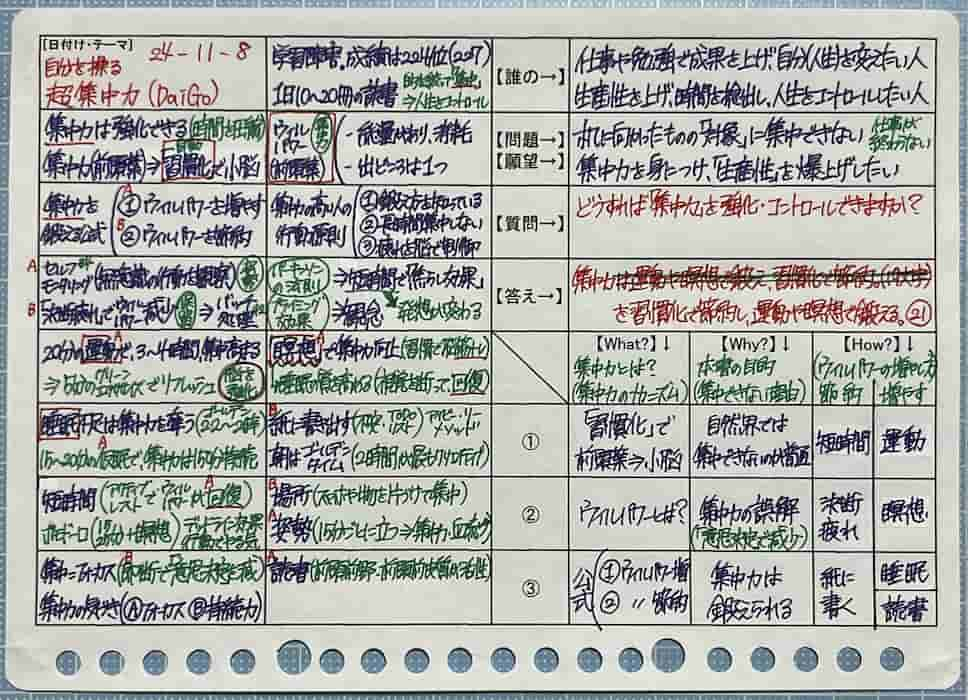 [日付け・テーマ] 24-11-8
自分を操る
超集中力 (DaiGo)
学習障害、成績は224位(227)
1日10〜20冊の読書
⇒人生をコントロール
【誰の→】
仕事に勉強で成果を上げ、自分(人生)を変えたい人
生産性を上げ、時間を検出し、人生をコントロールしたい人
集中力は強化できる(時間を圧縮)
集中力(前頭葉)⇒習慣化で小脳
ウィル
パワー
(前頭葉)
- 総量があり、消耗
- 出どころは1つ
【問題→】
【願望→】
机に向かったものの「対象」に集中できない
仕事が
終わらない
集中力を身につけ、「生産性」を爆上げしたい
集中力を
鍛える公式
A
①ウィルパワーを増やす
B
②ウィルパワーを節約
集中力の高い人の
行動原則
①鍛え方を知っている
②長時間集中しない
③疲れを脳で制御
【質問→】
どうすれば「集中力」を強化・コントロールできますか?
A
セルフ
モニタリング(無意識の行動を観察)
B
決断疲れでウィルパワー減り
⇒バッチ
処理
パーキンソン
の法則
⇒短時間で「焦らし効果」
プライミング
効果
⇒観念
発想が変わる
【答え→】
集中力は運動や瞑想で鍛え、習慣化で節約。
を習慣化で節約し、運動や瞑想で鍛える。㉑
20分の運動で、3〜4時間、集中高まる
⇒5分のグリーンエクササイズでリフレッシュ
A
瞑想で集中力向上
回復
【What?】↓
集中力とは?
(集中力のメカニズム)
【Why?】↓
本書の目的
(集中できない理由)
【How?】↓
(ウィルパワーの増やし方)
節約
増やす
睡眠不足は集中力を奪う(ゴールデン22〜2時)
A
15〜20分の仮眠で、集中力は150分持続
B
紙に書き出す
アイビー・リー
メソッド
朝はゴールデン
タイム(2時間が最もクリエイティブ)
①
「習慣化」で
前頭葉⇒小脳
自然界では
集中できないのが普通
短時間
運動
短時間(アクティブレストでウィルパワーが回復)
A
ポモドーロ(25分+瞑想)
デッドライン効果
B
場所(スマホや物を片づけて集中)
A
姿勢(15分ごとに立つ⇒集中力、血流↑)
②
ウィルパワーとは?
集中力の誤解
(「意思決定で減少」)
決断
疲れ
瞑想
B
集中=フォーカス(即断で「意思決定を減」)
集中力の長さ(Ⓐフォーカス Ⓑ持続力)
A
読書(前頭前野・前頭前皮質が活性)
③
公式
①ウィルパワー増
②〃節約
集中力は
鍛えられる
紙に
書く
睡眠
読書